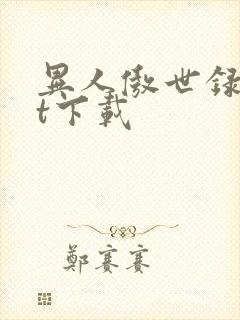 異人傲世録
t下載
鄭賽賽